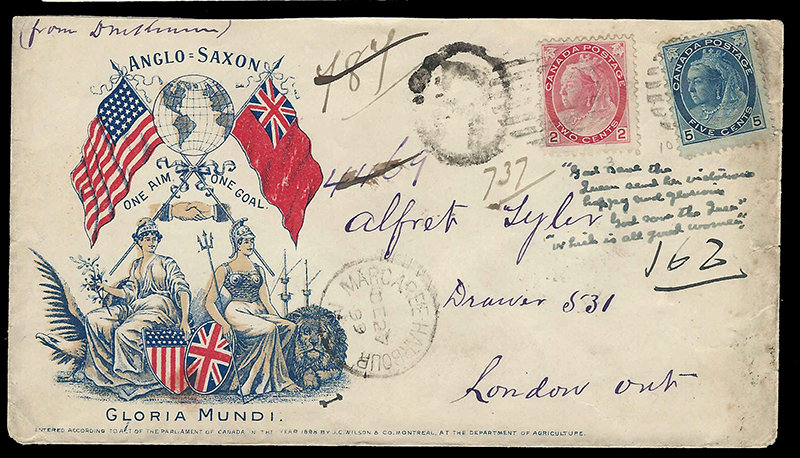 (from
ANGLO=SAXON
ONE AIM. ONE GOAL.
GLORIA MUNDI.
ENTERED ACCORDING TO ACT OF THE PARLIAMENT OF CANADA IN THE YEAR 1898 BY J.C. WILSON & CO. MONTREAL, AT THE DEPARTMENT OF AGRICULTURE.
787
4469
737
CANADA POSTAGE
2 TWO CENTS 2
CANADA POSTAGE
5 FIVE CENTS 5
"God save the
Queen send her victorious
happy and glorious
God save the Queen"
"which is all good women"
162
Alfret Tyler
Drawer 531
London ont
MARGAREE HARBOUR
DE 27
99